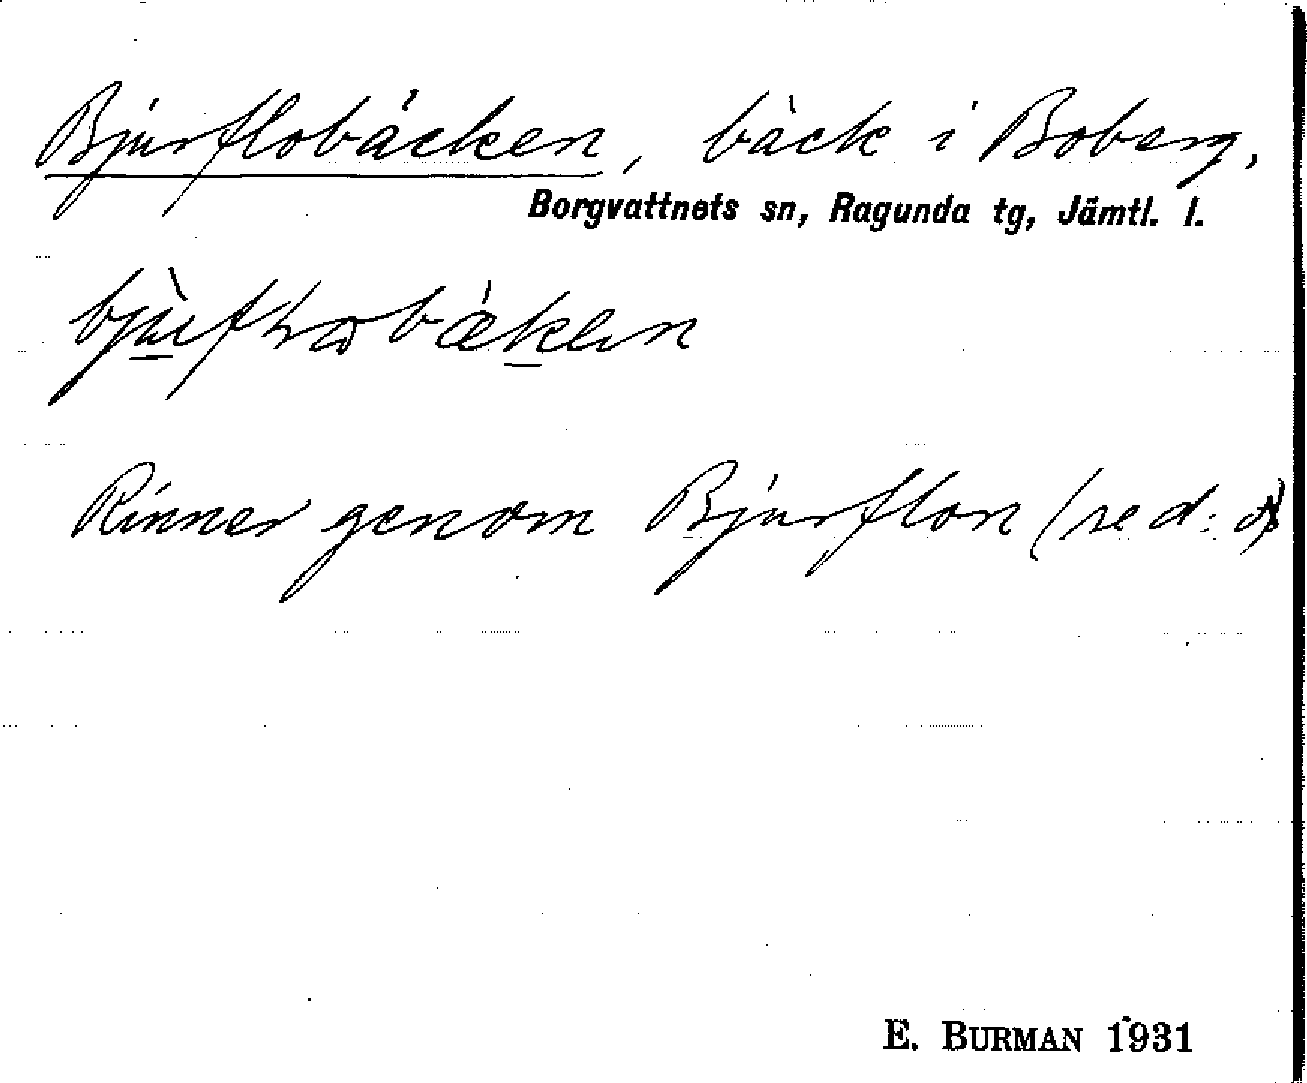 Bjurflobäcken, bäck i Boberg,
Borgvattnets sn, Ragunda tg, Jämtl. l.
Rinner genom Bjurflon (se d: o)
E. BURMAN 1931